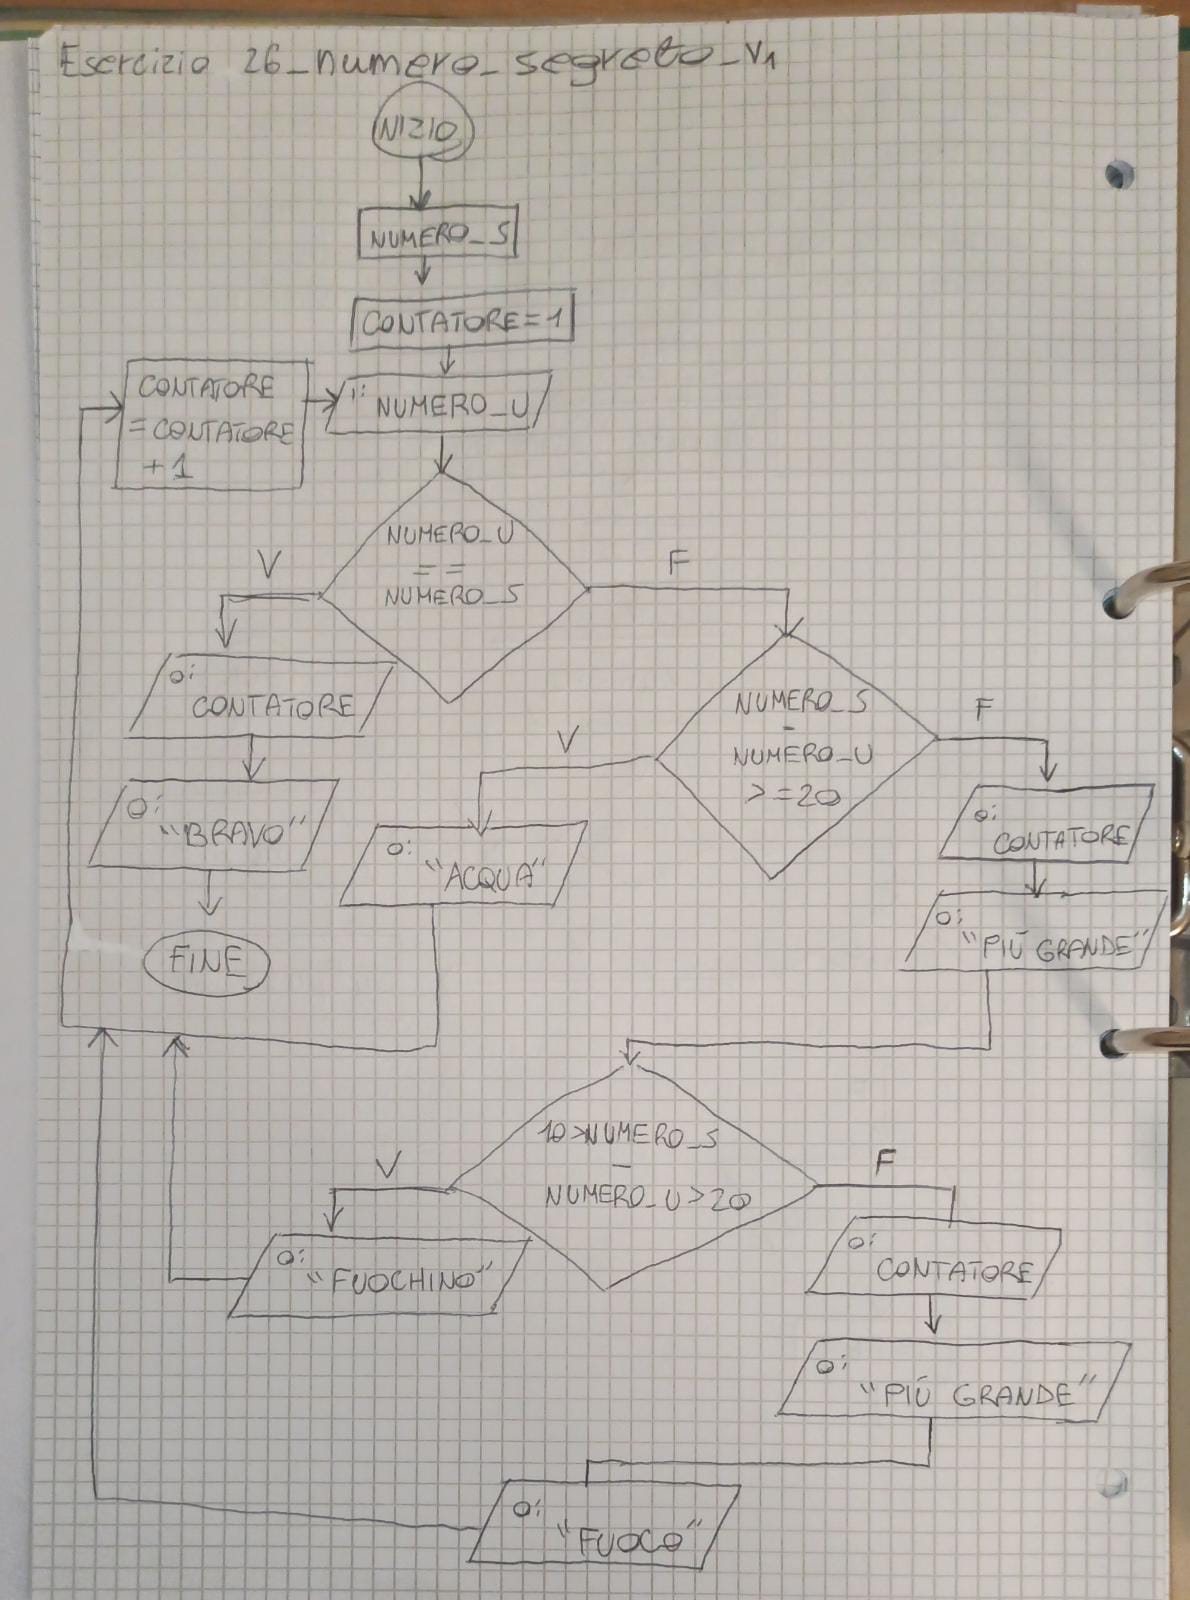 Esercizio 26_numero_segreto_V1
INIZIO
NUMERO_S
CONTATORE=1
CONTATORE
=CONTATORE
+1
I: NUMERO_U
NUMERO_U
==
NUMERO_S
V
F
O:
CONTATORE
O:
"BRAVO"
FINE
NUMERO_S
-
NUMERO_U
>=20
V
F
O:
"ACQUA"
O:
CONTATORE
O:
"PIÚ GRANDE"
10>NUMERO_S
-
NUMERO_U>20
V
F
O:
"FUOCHINO"
O:
CONTATORE
O:
"PIÚ GRANDE"
O:
"FUOCO"